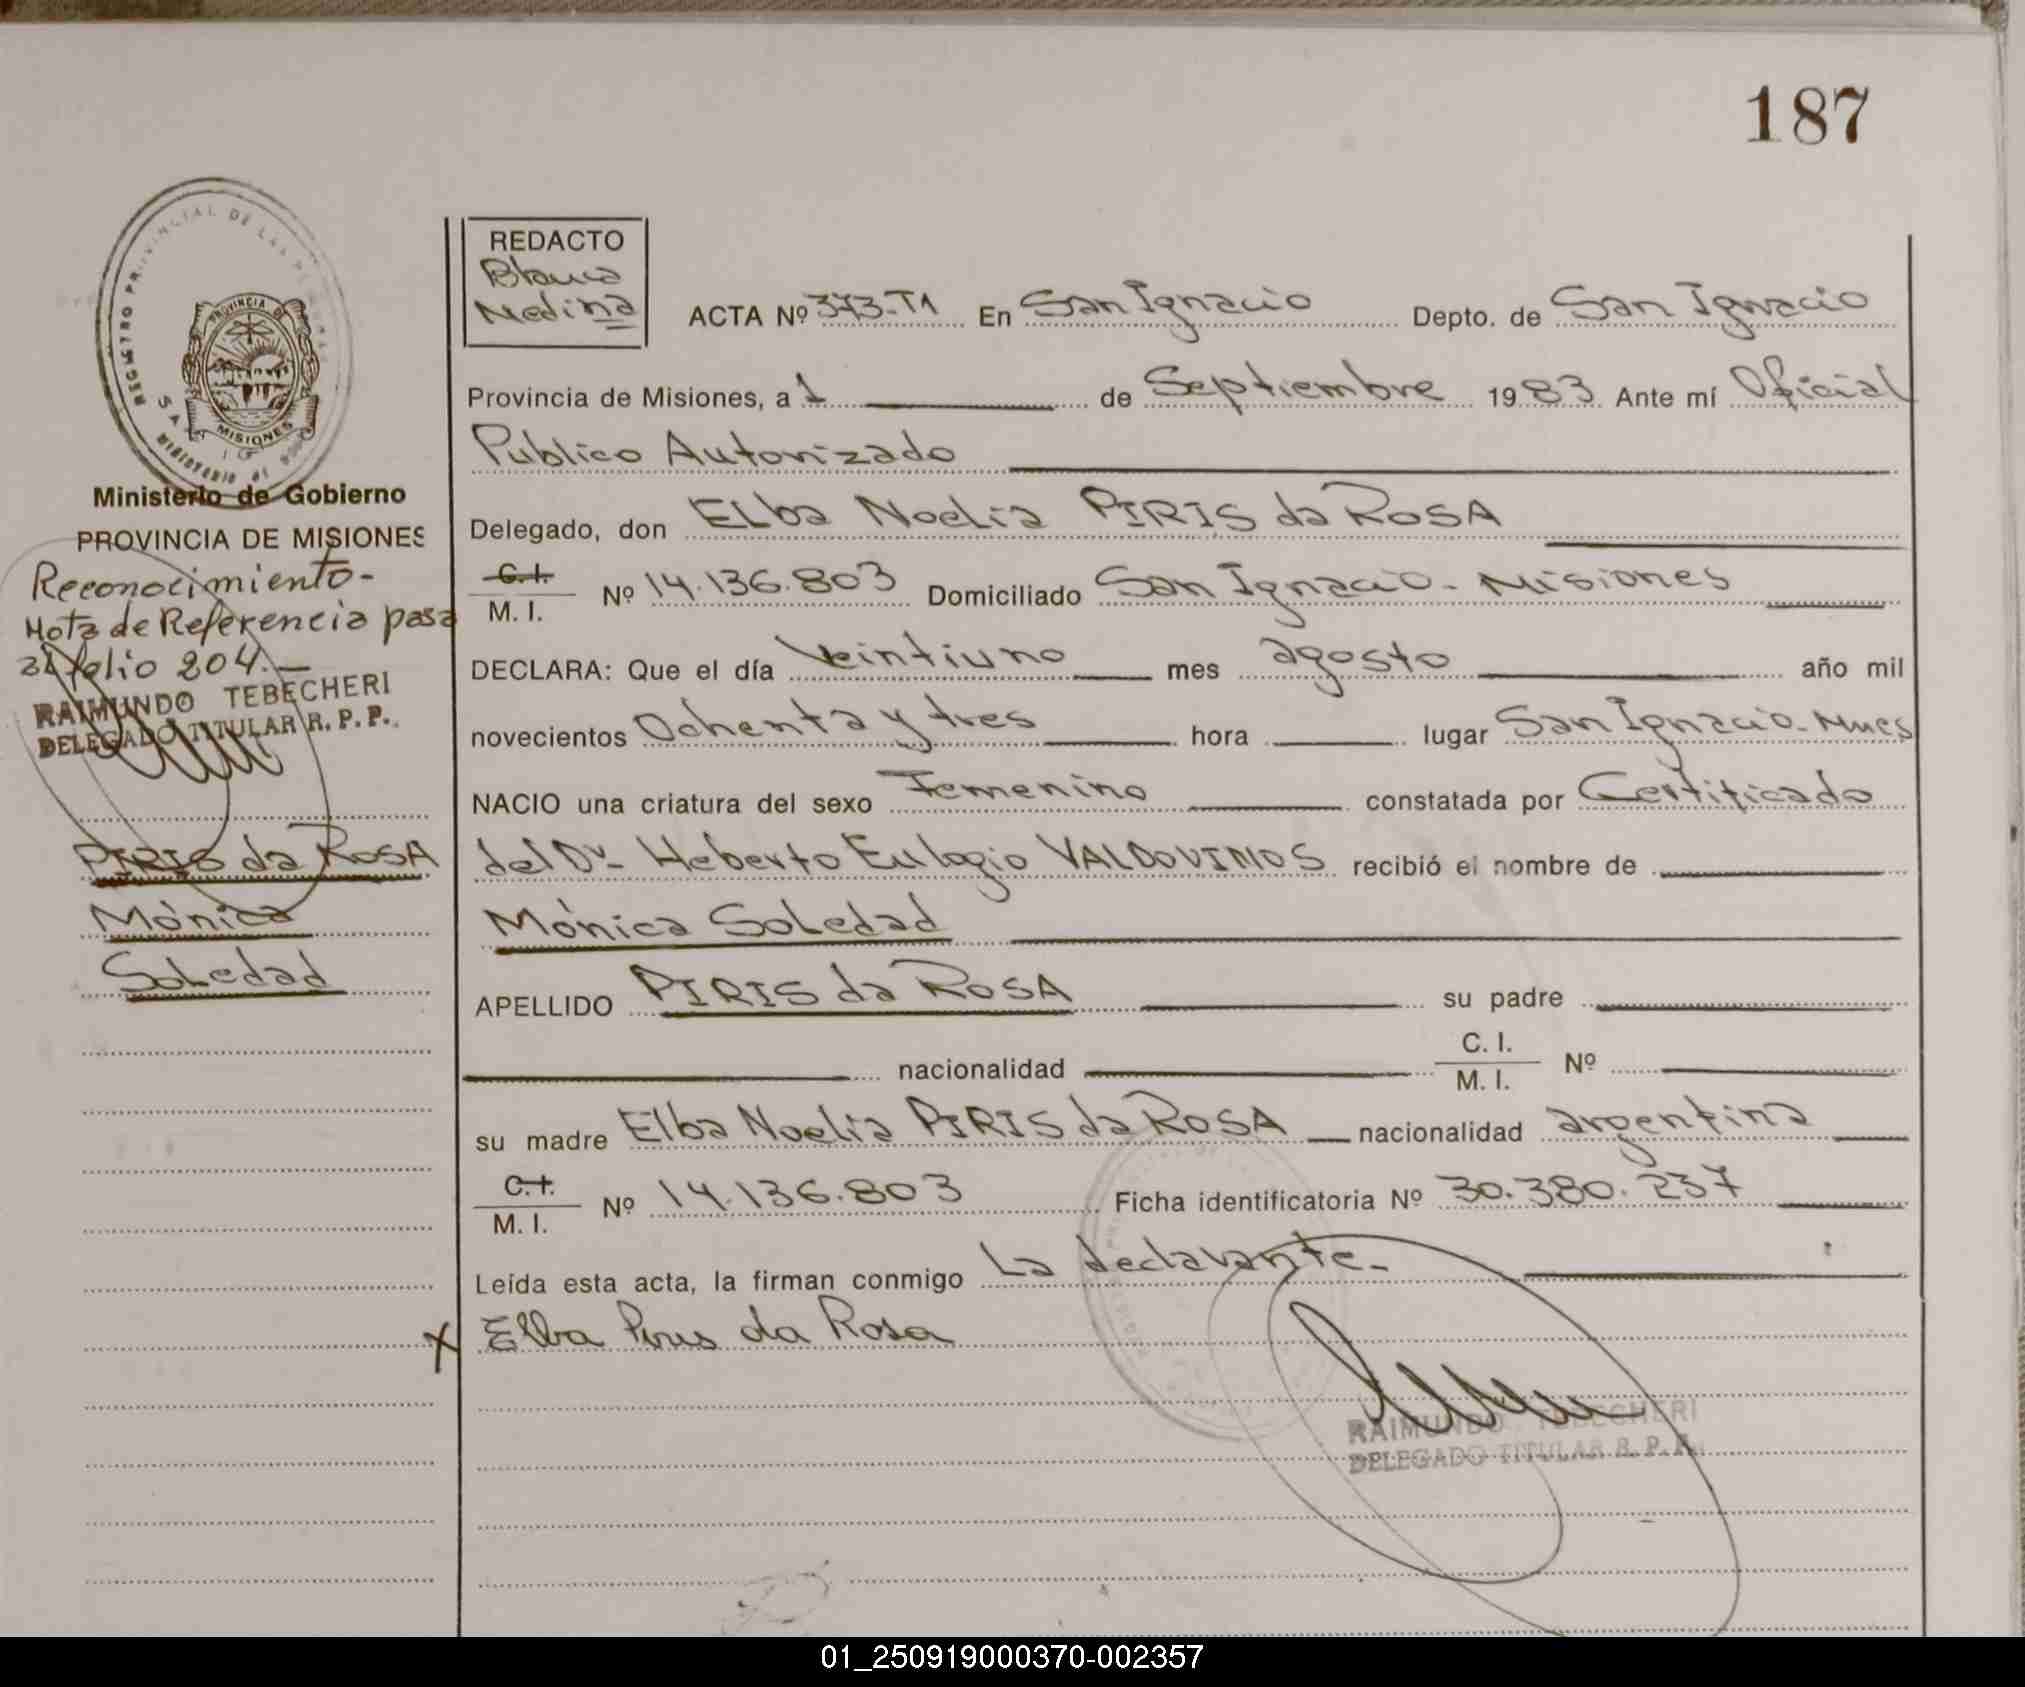 187
REGISTRO PROVINCIAL DE LAS PERSONAS
PROVINCIA DE
MISIONES
MINISTERIO DE
Ministerio de Gobierno
PROVINCIA DE MISIONES
Reconocimiento-
Nota de Referencia pasa
al folio 204.-
RAIMUNDO TEBECHERI
DELEGADO TITULAR R. P. P.
PIRIS da ROSA
Mónica
Soledad
REDACTO
Blanca
Medina
ACTA Nº 373-T1 En San Ignacio Depto. de San Ignacio
Provincia de Misiones, a 1 de Septiembre 1983. Ante mí Oficial
Publico Autorizado
Delegado, don Elba Noelia PIRIS da ROSA
C. I.
M. I. Nº 14.136.803 Domiciliado San Ignacio - Misiones
DECLARA: Que el día veintiuno mes agosto año mil
novecientos Ochenta y tres hora lugar San Ignacio - Mnes
NACIO una criatura del sexo Femenino constatada por Certificado
del Dr. Heberto Eulogio VALDOVINOS recibió el nombre de
Mónica Soledad
APELLIDO PIRIS da ROSA su padre
nacionalidad C. I.
M. I. Nº
su madre Elba Noelia PIRIS da ROSA nacionalidad argentina
C. I.
M. I. Nº 14.136.803 Ficha identificatoria Nº 30.380.237
Leída esta acta, la firman conmigo La declarante.-
X Elba Piris da Rosa
RAIMUNDO TEBECHERI
DELEGADO TITULAR R. P. P.
01_250919000370-002357